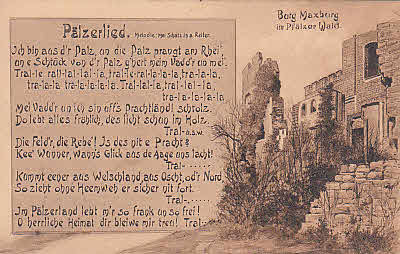 Pälzerlied. Melodie: Mei Schatz is a Reiter.
Ich bin aus d'r Palz, un die Palz prangt am Rhei',
un e Schtück von d'r Palz g'hert meim Vadd'r un mei'.
Tral-le rall-lal-lal-la, tral-le-ral-la-la-la, tra-la-la,
tra-la-la tra-la-la-la. Tral-lal-la, tral-lal-la,
tra-la-la, tra-la-la-la.
Mei Vadd'r un ich sin uff's Prachtländl schtolz.
Do lebt alles frählich, des licht schun im Holz.
Tral-u.s.w.
Die Feld'r, die Rebe'! Is des nit e Pracht?
Kee' Wonner, wann's Glick aus de Aage uns lacht!
Tral-......
Kummt eener aus Welschland, aus Oscht, od'r Nord,
So zieht ohne Heemweh er sicher nit fort.
Tral-......
Im Pälzerland lebt m'r so frank un so frei!
O herrliche Heimat dir bleiwe mir treu! Tral-....
Burg Maxburg
im Pfälzer Wald.